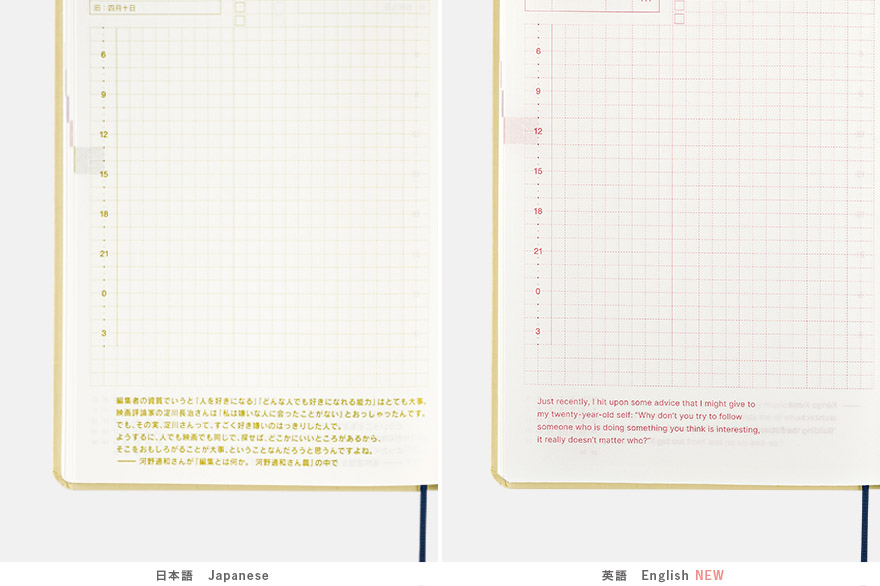 旧:四月十日
6
9
12
15
18
21
0
3
編集者の資質でいうと「人を好きになる」「どんな人でも好きになれる能力」はとても大事。
映画評論家の淀川長治さんは「私は嫌いな人に会ったことがない」とおっしゃったんです。
でも、その実、淀川さんって、すごく好き嫌いのはっきりした人で。
ようするに、人でも映画でも同じで、探せば、どこかにいいところがあるから、
そこをおもしろがることが大事、ということなんだろうと思うんですよね。
—— 河野通和さんが『編集とは何か。 河野通和さん篇』の中で
6
9
12
15
18
21
0
3
Just recently, I hit upon some advice that I might give to
my twenty-year-old self: “Why don’t you try to follow
someone who is doing something you think is interesting,
it really doesn’t matter who?”
日本語 Japanese
英語 English NEW